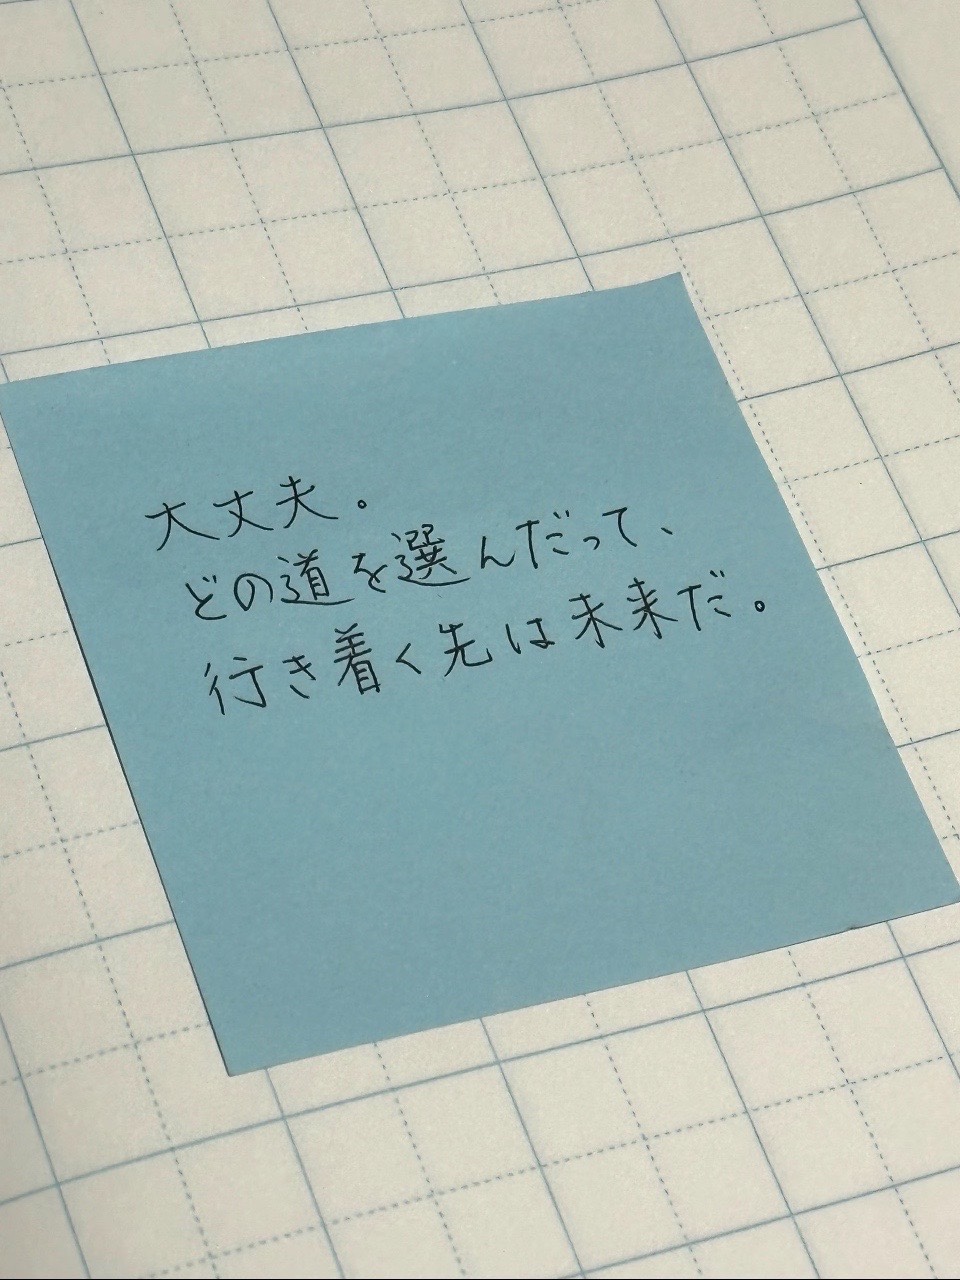 大丈夫。
どの道を選んだって、
行き着く先は未来だ。